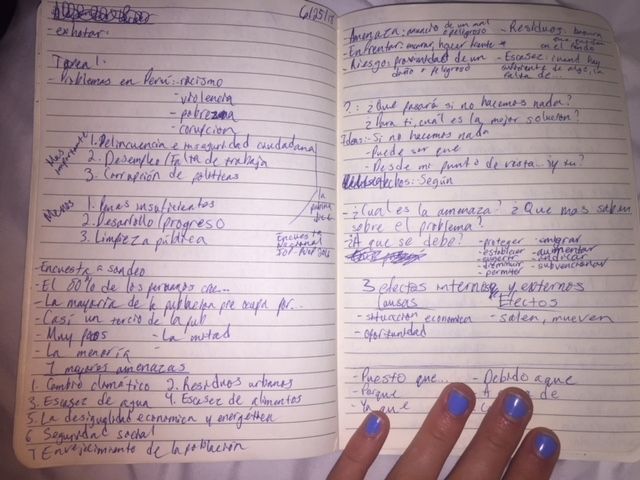 6/25/18
- exhotar:
Tarea 1:
- Problemas en Perú: - racismo
- violencia
- pobreza
- corupcion
Mas importante
1. Delincuencia e inseguridad ciudadana
2. Desempleo/falta de trabajo
3. Corrupción de politicas
Menos
1. Penas insuficientes
2. Desarollo/progreso
3. Limpieza pública
la
Encuesta
Nacional
- Encuesta o sondeo
- El 80% de los peruanos cree...
- La mayoría de la poblacion
- Casi un tercio de la
- Muy pocos - La mitad
- La menoría
7 mayores amenazas
1. Cambio climático 2. Residuos urbanos
3. Escasez de agua 4. Escasez de alimentos
5. La desigualdad economica y energética
6. Seguridad social
7 Envejecimiento de la población
Amenaza: anuncio de un mal o peligroso
- Residuos: basura
en el fondo
- Enfrentar:
- Riesgo: proximidad de un daño o peligroso
- Escasez:
falta de...
?: ¿Que pasará si no hacemos nada?
¿Para ti, cuál es la mejor solución?
Ideas: - Si no hacemos nada
- Puede ser que
- Desde mi punto de vista... ¿y tu?
Según
- ¿Cuál es la amenaza? ¿Que mas saben
sobre el problema?
¿A que se debe?
- proteger - emigrar
- establecer - aumentar
- sugerir - indicar
- disminuir - subvencionar
- permitir
3 efectos internos y externos
Causas Efectos
- situación economica - salen, mueven
- oportunidad
- Puesto que... - Debido a que
- Porque
- Ya que